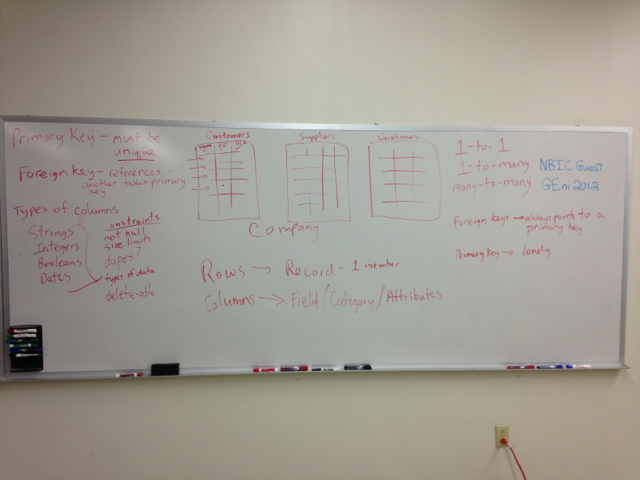 Primary Key - must be
unique
Foreign key - references
another table's primary
key
Types of columns
Strings
Integers
Booleans
Dates
constraints
not null
size limits
dupes?
types of data
delete-able
Customers
Suppliers
Warehouses
Company
Rows → Record - 1 member
Columns → Field/Category/Attributes
1-to-1
1-to-many
many-to-many
NBIC Guest
GEni2012
Foreign keys → always points to a
primary key
Primary key → lonely